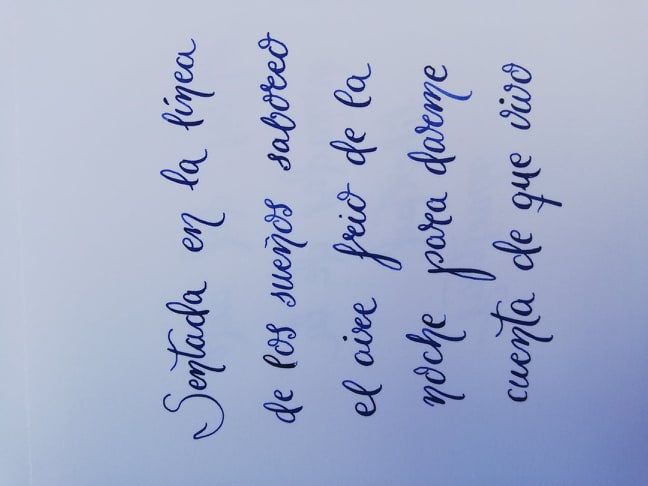 Sentada en la línea
de los sueños saboreo
el aire frio de la
noche para darme
cuenta de que vivo